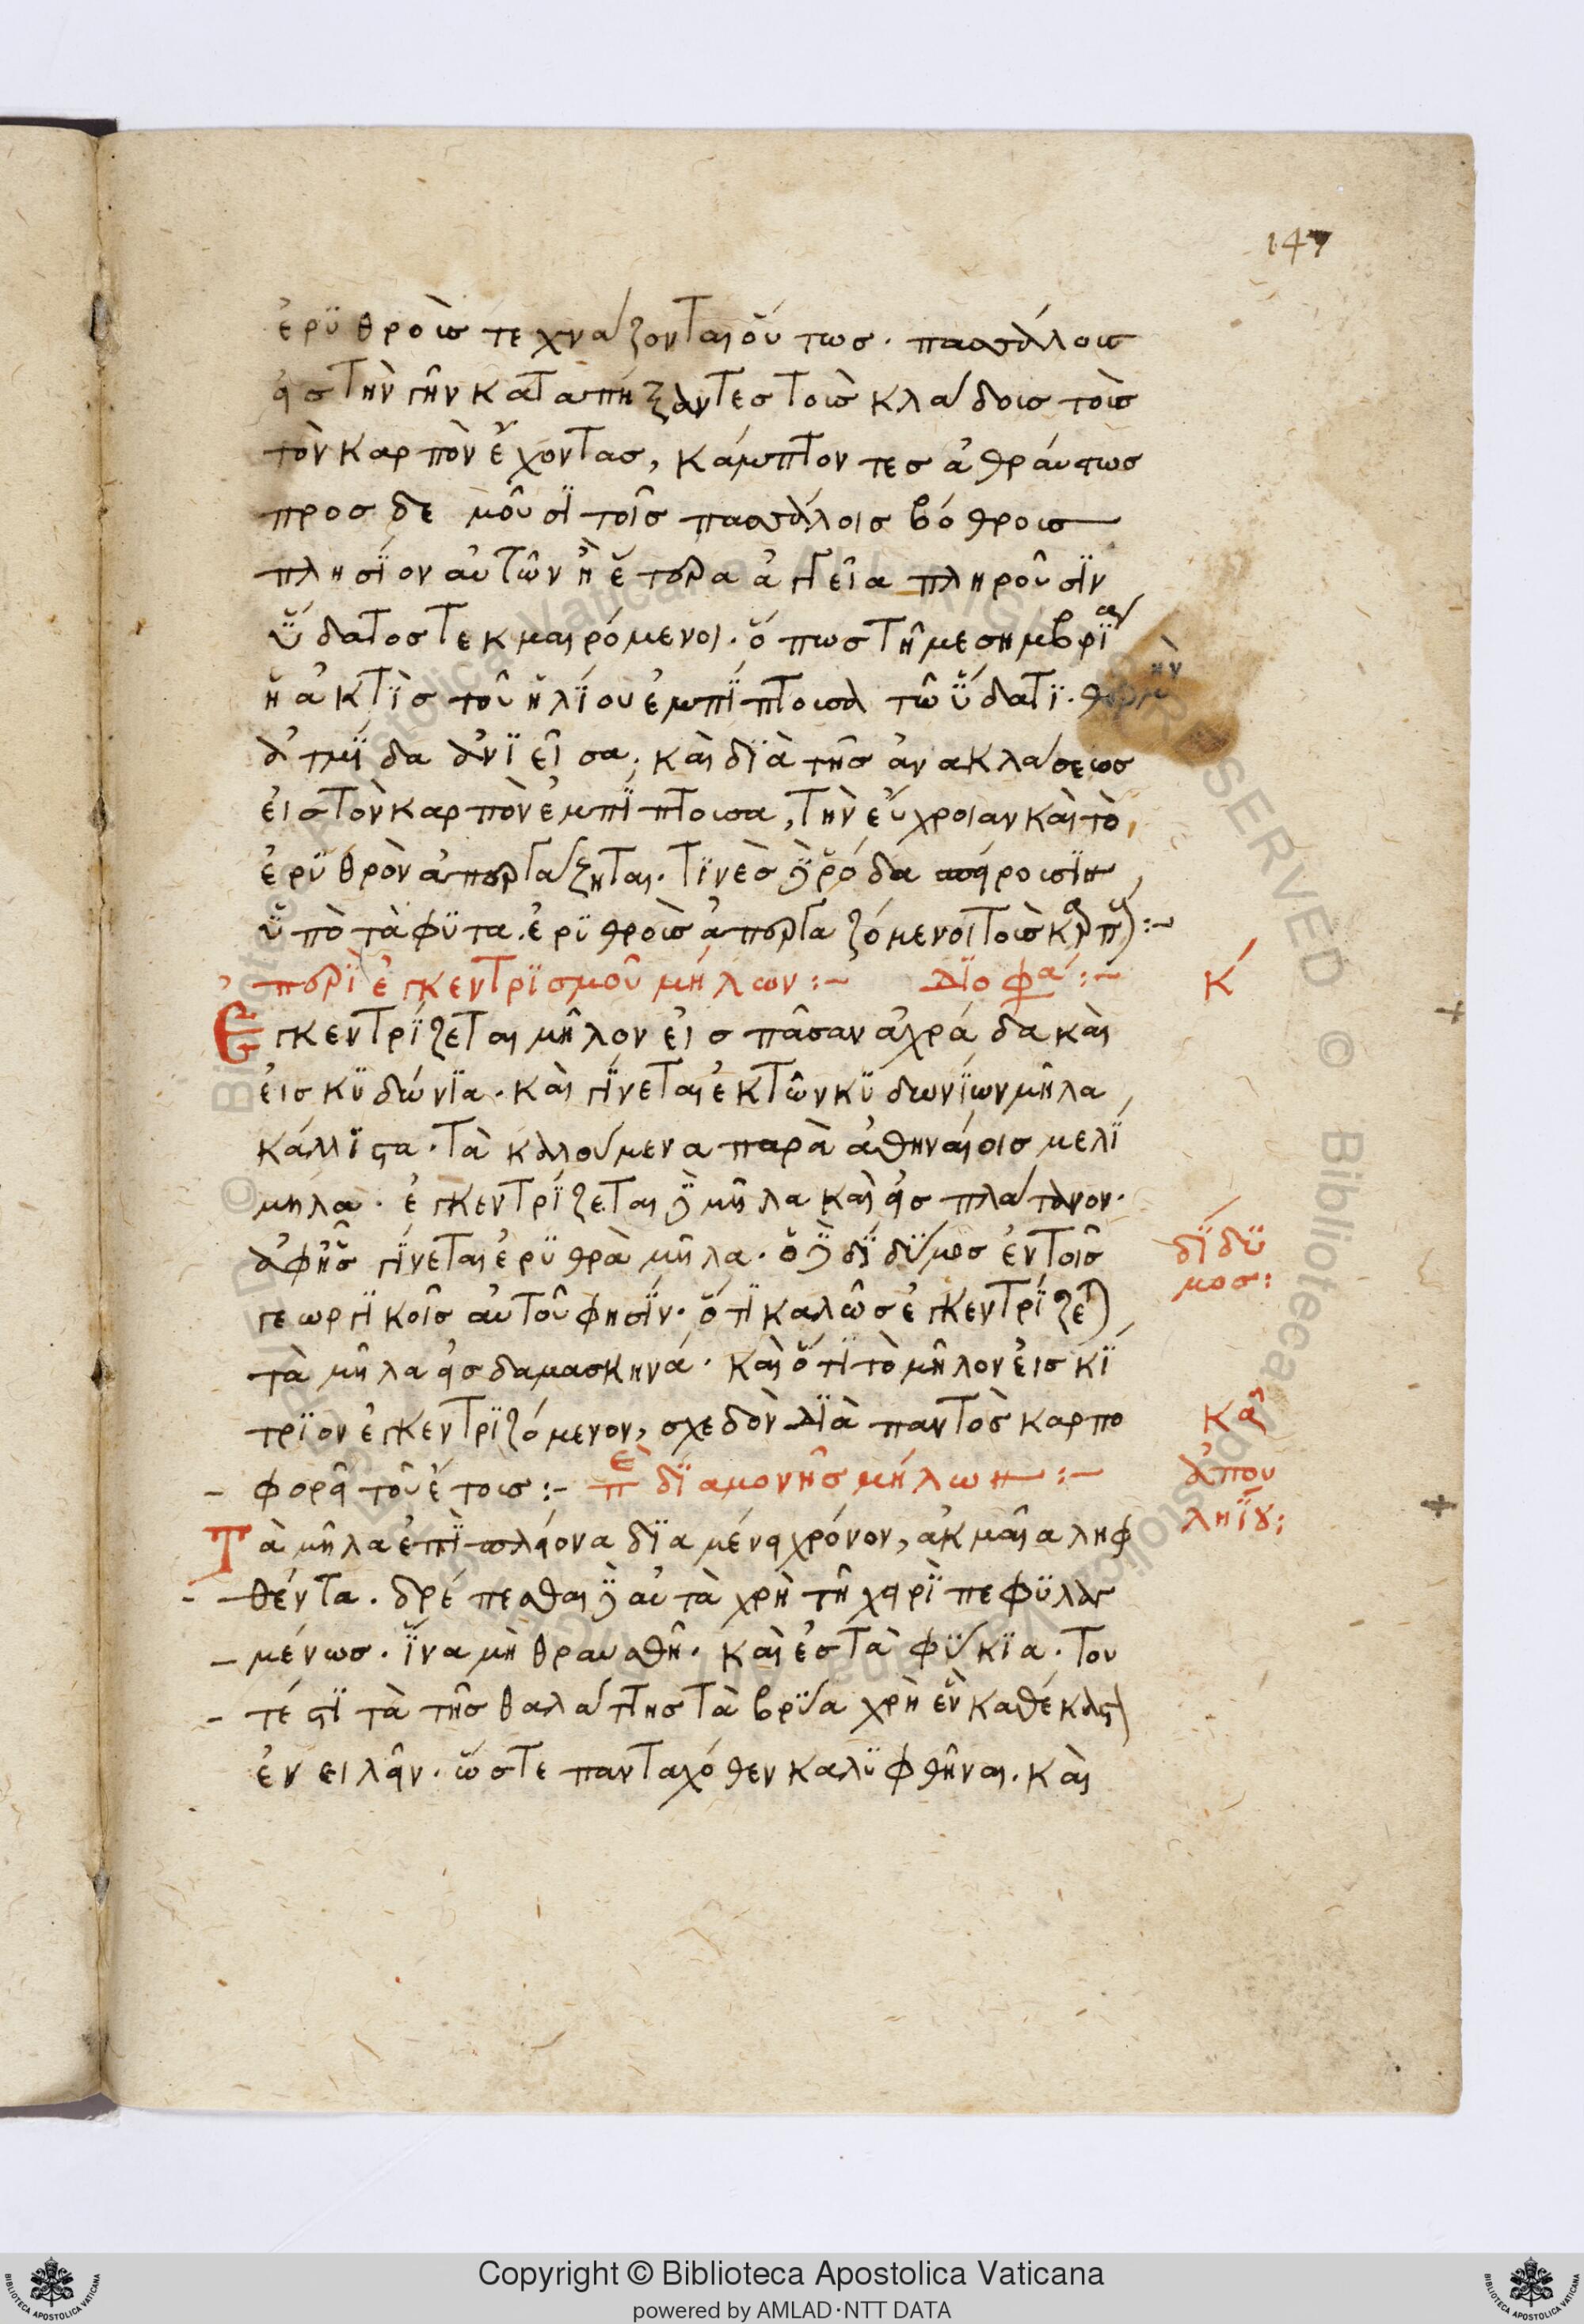 147
ἐρϋθροὺσ τεχνάζονται οὕτωσ · πασσάλουσ
εἰσ τὴν γῆν καταπήξαντεσ τοὺσ κλάδουσ τοὺσ
τὸν καρπὸν ἔχοντασ, κάμπτοντεσ ἀθραύστωσ
προσδεσμοῦσϊ τοῖσ πασσάλοισ βόθρουσ
πλησΐον αὐτῶν ἢ ἕτερα ἀγγεῖα πληροῦσϊν
ὕδατοσ τεκμαιρόμενοι · ὅπωσ τῆ μεσημβρΐασ
ἡ ἀκτὶσ τοῦ ἡλΐου ἐμπΐπτουσα τῶ ὕδατϊ · θερμὴν
ἀτμΐδα ἀνϊεῖσα · καὶ δϊὰ τῆσ ἀνακλάσεωσ
εἰσ τὸν καρπὸν ἐμπΐπτουσα, τὴν εὔχροιαν καὶ τὸ
ἐρϋθρὸν ἀπεργάζηται · τϊνὲσ δὲ ῥόδα σπείρουσϊν
ὑπὸ τὰ φϋτὰ · ἐρϋθροὺσ ἀπεργαζόμενοι τοὺσ καρπούσ :-
περὶ ἐγκεντρϊσμοῦ μήλων :- Δϊοφά :-
κ́
Ἐγκεντρΐζεται μῆλον εἰσ πᾶσαν ἀχράδα καὶ
εἰσ κϋδώνϊα · καὶ γΐνεται ἐκ τῶν κϋδωνΐων μῆλα
κάλλϊστα · τὰ καλούμενα παρὰ ἀθηναίοισ μελΐ
μηλα · ἐγκεντρΐζεται δὲ μῆλα καὶ εἰσ πλάτανον ·
ἀφ' ἧσ γΐνεται ἐρϋθρὰ μῆλα · ὁ δὲ δΐδϋμοσ ἐν τοῖσ
δΐδϋ
μοσ :
γεωργϊκοῖσ αὐτοῦ φησΐν · ὅτϊ καλῶσ ἐγκεντρΐζεται
τὰ μῆλα εἰσ δαμασκηνά · καὶ ὅτϊ τὸ μῆλον εἰσ κΐ
τρϊον ἐγκεντρϊζόμενον, σχεδὸν δϊὰ παντὸσ καρπο
φορεῖ τοῦ ἔτουσ :- πε δϊαμονῆσ μήλων :-
κα
ἀπου
ληΐου :
Τὰ μῆλα ἐπῒ πλείονα δϊαμένει χρόνον, ἀκμαῖα ληφ
θέντα · δρέπεσθαι δὲ αὐτὰ χρὴ τῆ χειρῒ πεφϋλαγ
μένωσ · ἵνα μὴ θραυσθῆ · καὶ ἐσ τὰ φϋκΐα · του
τέστϊ τὰ τῆσ θαλάττησ τὰ βρΰα χρὴ ἓν καθέκαστον
ἐνειλεῖν · ὥστε πανταχόθεν καλϋφθῆναι · καὶ
© Biblioteca Apostolica Vaticana
Copyright © Biblioteca Apostolica Vaticana
powered by AMLAD·NTT DATA
BIBLIOTECA APOSTOLICA VATICANA
BIBLIOTECA APOSTOLICA VATICANA